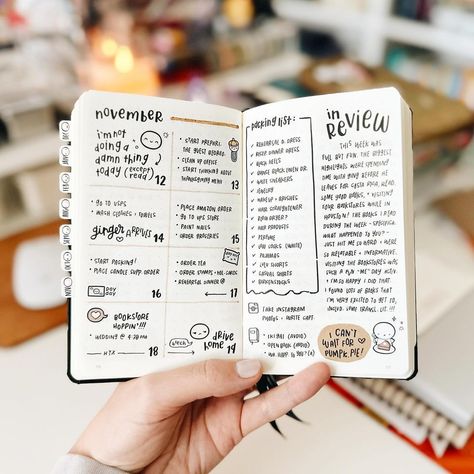 november
i'm not
doing a
damn thing
today (except
read)
12
• START PREPARI
THE GUEST
• CLEAN UP OFFICE
• START THINKING ABOUT
THANKSGIVING MENU
13
• GO TO USPS
• WASH CLOTHES + TOWELS
ginger ARRIVES
14
• PLACE AMAZON ORDER
• GO TO UPS STORE
• PAINT NAILS
• ORDER GROCERIES
15
• START PACKING!
• PLACE CANDLE SUPP. ORDER
PAY
DAY
16
• ORDER TEA
• ORDER STAMPS
• REHEARSAL DINNER
17
BOOKSTORE
HOPPIN'!!!
WEDDING @ 4:30PM
HTX
18
drive
home
19
packing list:
REHEARSAL D. DRESS
DRESS
BLACK HEELS
WHITE SNEAKERS
JEWELRY
MAKEUP + BRUSHES
HAIR STRAIGHTENER
BOOK ORDER?
HAIR PRODUCTS
PERFUME
LULU SOCKS (WHITE)
PAJAMAS
LULU SHORTS
CASUAL SHIRTS
BIRKENSTOCKS
TAKE INSTAGRAM
PHOTOS + WRITE CAPT.
(AUDIO)
• OPEN BOOK (AUDIO)
in
REVIEW
THIS WEEK WAS
FULL OF FUN. THE BIGGEST
HIGHLIGHTS WERE SPENDING
TIME WITH GING BEFORE HE
LEAVES FOR COSTA RICA,
SOME GOOD BOOKS, + VISITING
FOUR BOOKSTORES WHILE IN
HOUSTON! THE BOOKS I READ
DURING THE WEEK - SPECIFICALLY
WHAT HAPPENED TO YOU? -
JUST HIT ME SO HARD + WERE
SO RELATABLE + INFORMATIVE.
VISITING THE BOOKSTORES WAS
SUCH A FUN "ME" DAY ACTIVITY.
+ I'M SO HAPPY I DID THAT.
I FOUND LOTS OF BOOKS THAT
I'M VERY EXCITED TO GET TO,
I CAN'T
WAIT FOR
PUMPK. PIE!